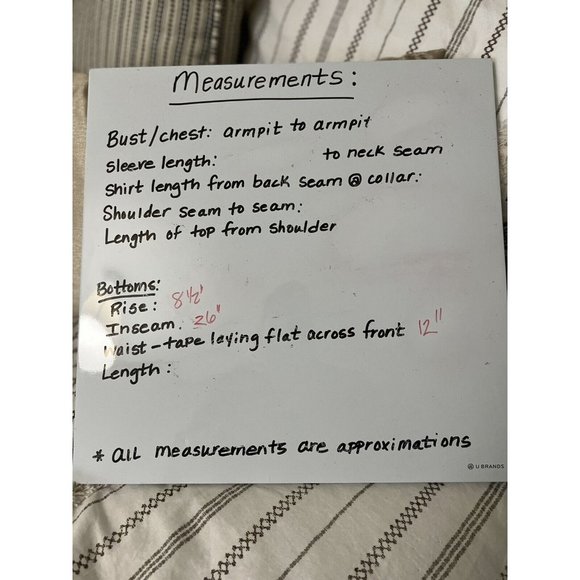 Measurements:
Bust/chest: armpit to armpit
Sleeve length: to neck seam
Shirt length from back seam @ collar:
Shoulder seam to seam:
Length of top from shoulder
Bottoms:
Rise: 8½'
Inseam. 26"
Waist - tape laying flat across front 12"
Length:
* all measurements are approximations
U BRANDS